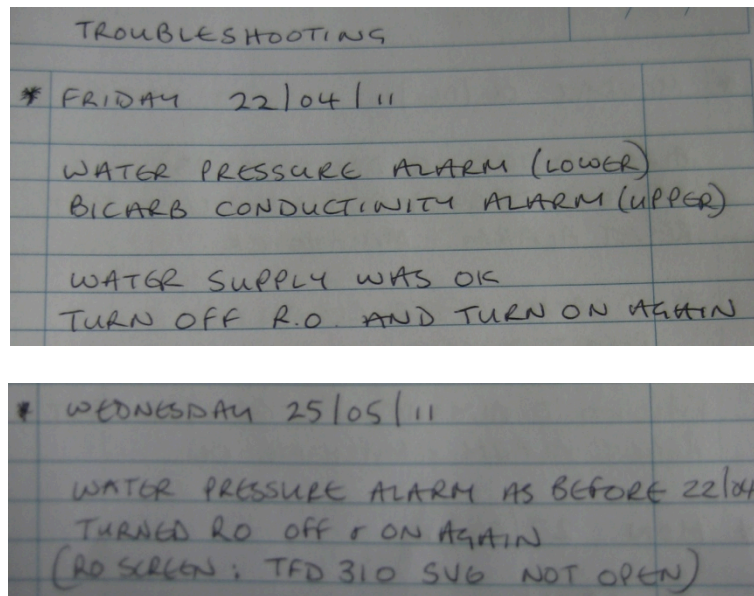 TROUBLESHOOTING
* FRIDAY 22/04/11
WATER PRESSURE ALARM (LOWER)
BICARB CONDUCTINITY ALARM (UPPER)
WATER SUPPLY WAS OK
TURN OFF R.O. AND TURN ON AGAIN
* WEDNESDAY 25/05/11
WATER PRESSURE ALARM AS BEFORE 22/04
TURNED RO OFF & ON AGAIN
(RO SCREEN: TFD 310 SVG NOT OPEN)